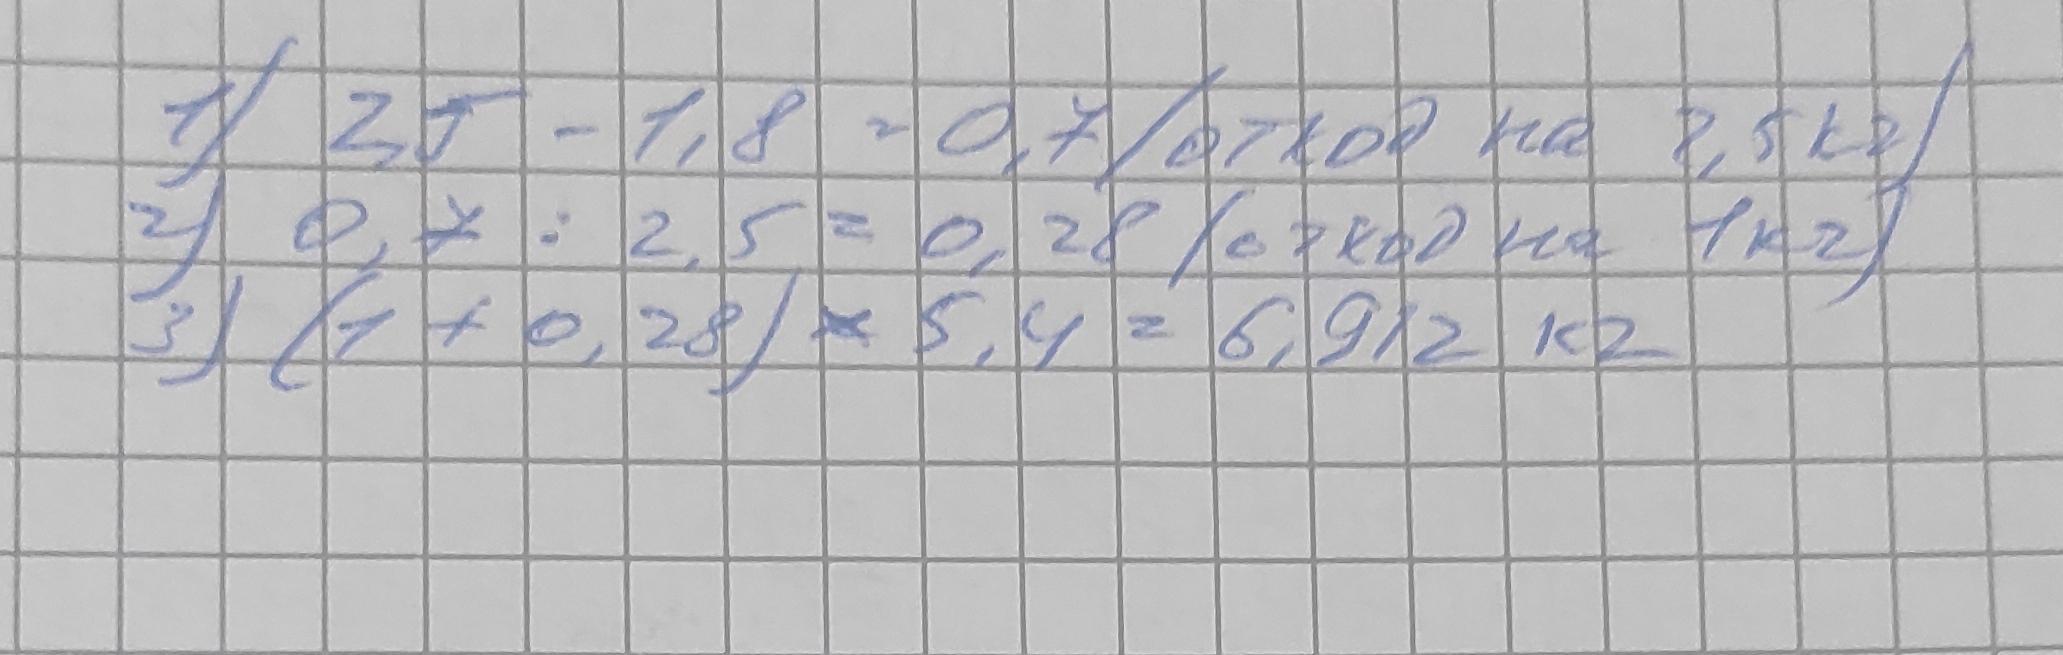 1) 2,5 - 1,8 = 0,7 (отход на 2,5 кг)
2) 0,7 : 2,5 = 0,28 (отход на 1 кг)
3) (1 + 0,28) × 5,4 = 6,912 кг